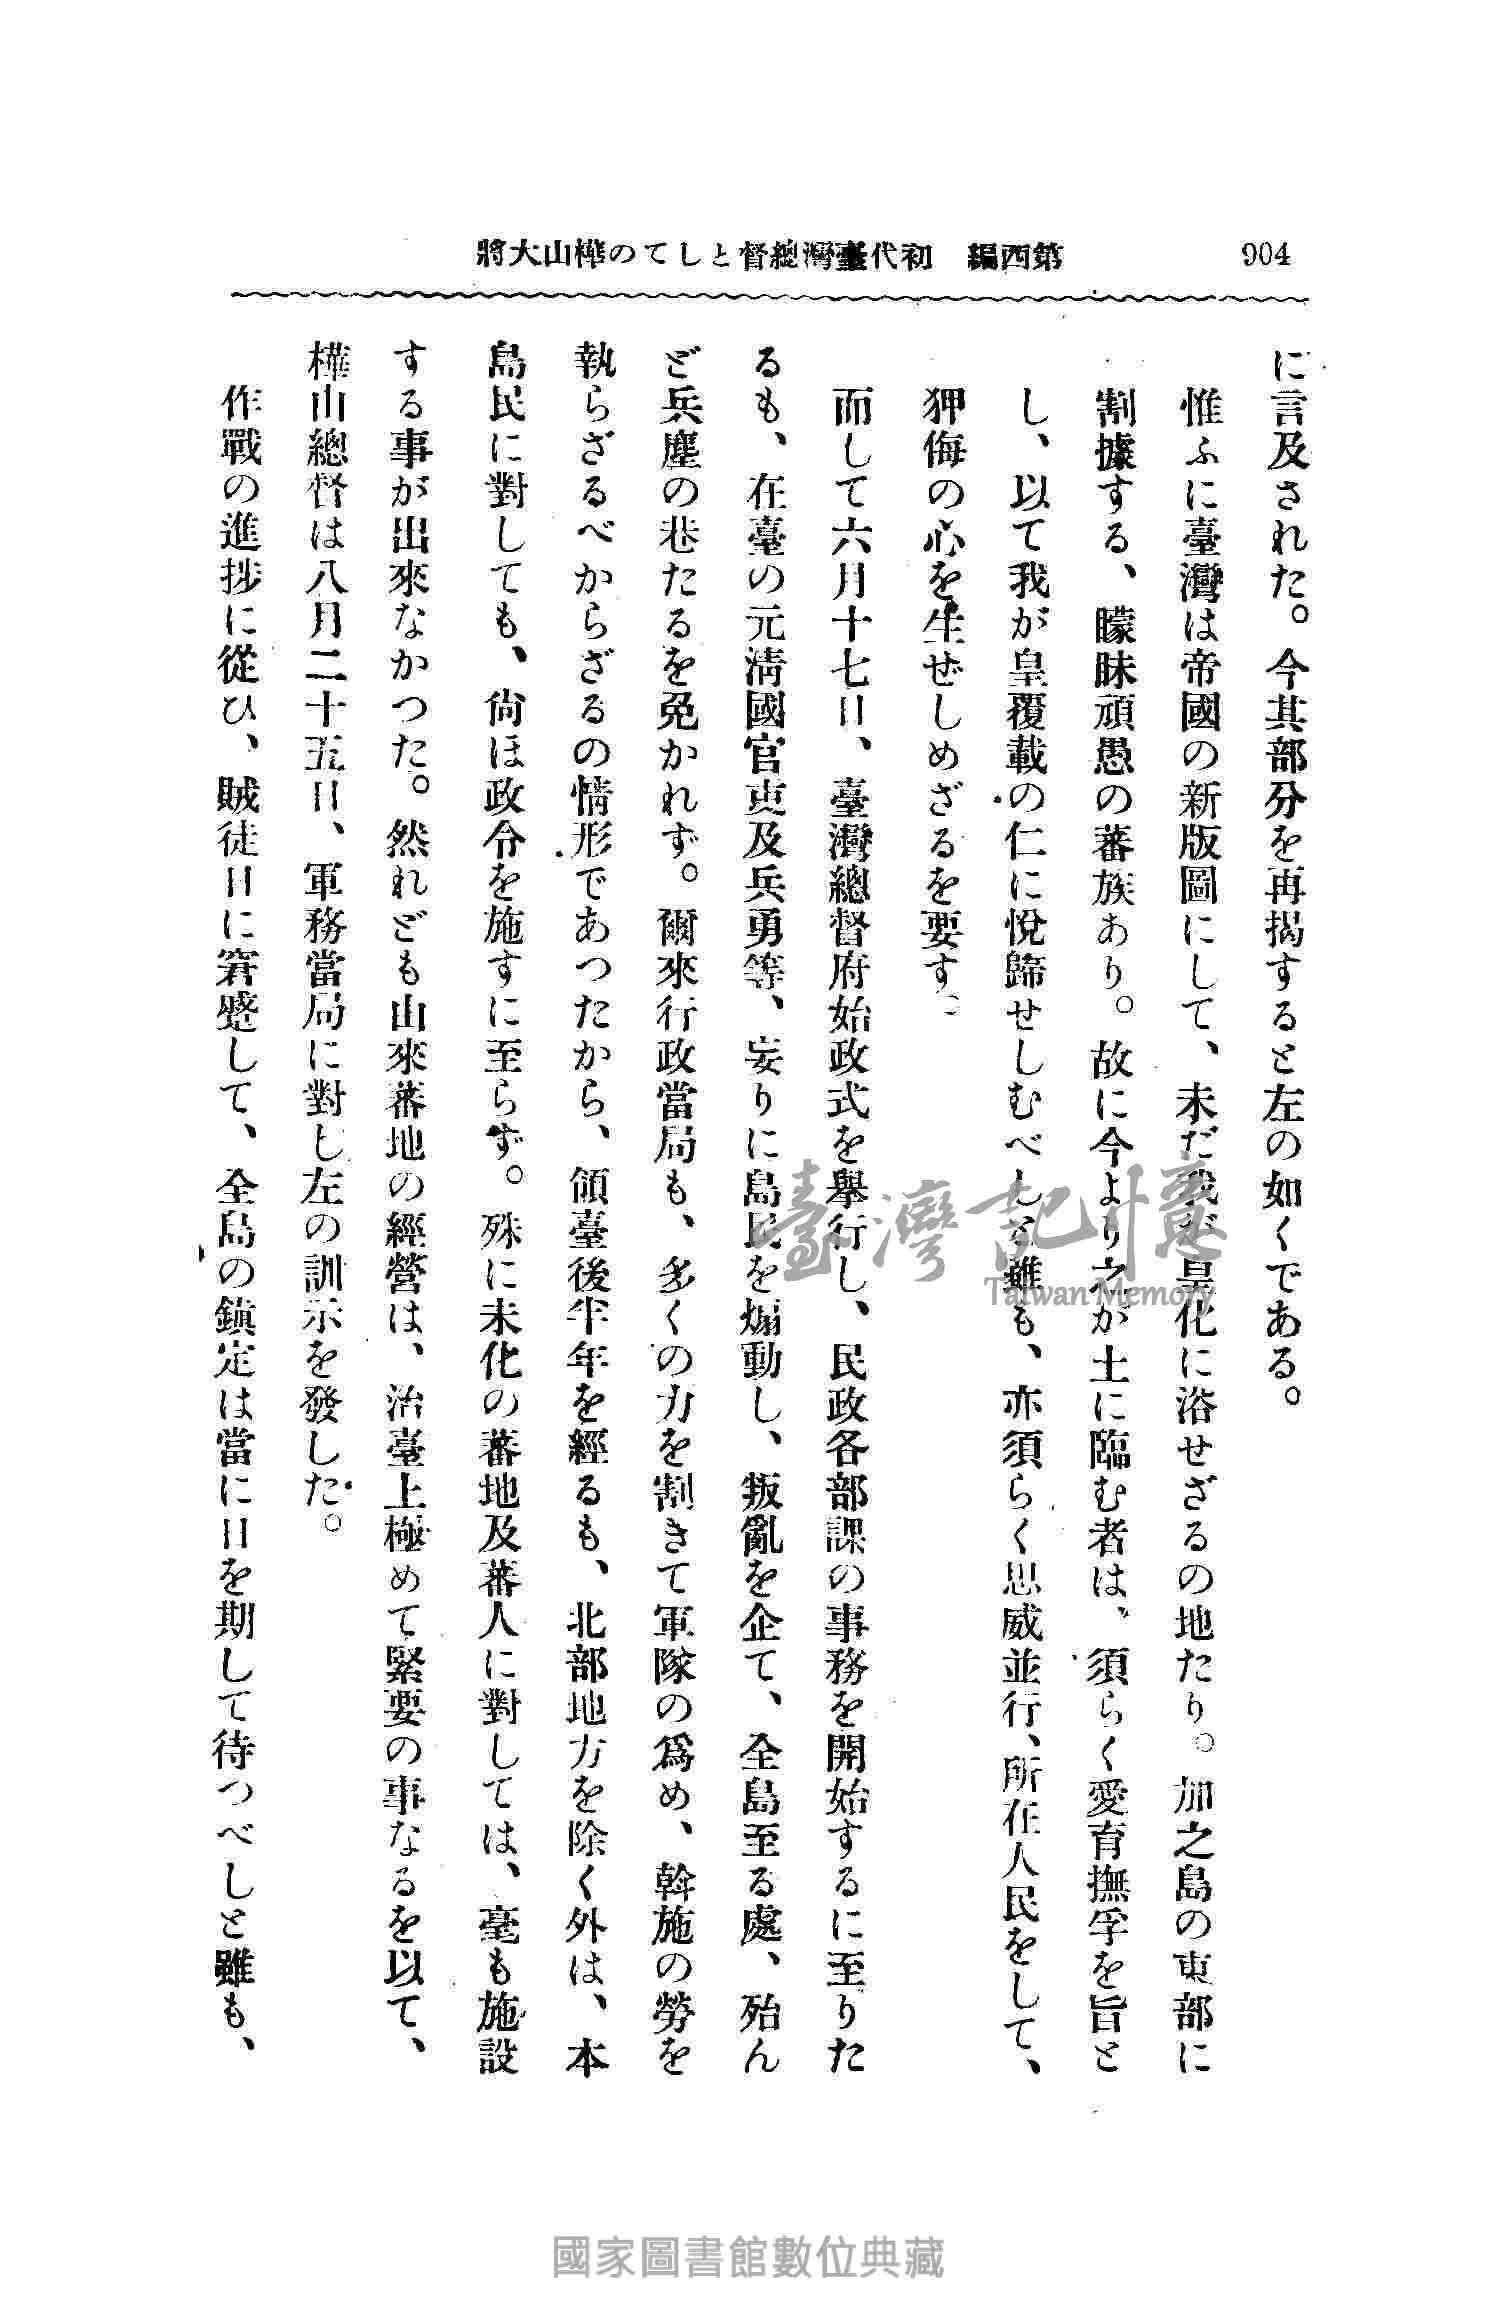 904
第西編　初代臺灣總督としての樺山大將
に言及された。今其部分を再揭すると左の如くである。
惟ふに臺灣は帝國の新版圖にして、未だ我が皇化に浴せざるの地たり。加之島の東部に
割據する、矇眛頑愚の蕃族あり。故に今より之が土に臨む者は、須らく愛育撫孚を旨と
し、以て我が皇覆載の仁に悅歸せしむべしと雖も、亦須らく恩威並行、所在人民をして、
狎侮の心を生ぜしめざるを要す。
而して六月十七日、臺灣總督府始政式を擧行し、民政各部課の事務を開始するに至りた
るも、在臺の元淸國官吏及兵勇等、妄りに島民を煽動し、叛亂を企て、全島至る處、殆ん
ど兵塵の巷たるを免かれず。爾來行政當局も、多くの力を割きて軍隊の爲め、斡施の勞を
執らざるべからざるの情形であつたから、領臺後半年を經るも、北部地方を除く外は、本
島民に對しても、尙ほ政令を施すに至らず。殊に未化の蕃地及蕃人に對しては、毫も施設
する事が出來なかつた。然れども山來蕃地の經營は、治臺上極めて緊要の事なるを以て、
樺山總督は八月二十五日、軍務當局に對し左の訓示を發した。
作戰の進捗に從ひ、賊徒日に窘蹙して、全島の鎭定は當に日を期して待つべしと雖も、
臺灣記憶
Taiwan Memory
國家圖書館數位典藏